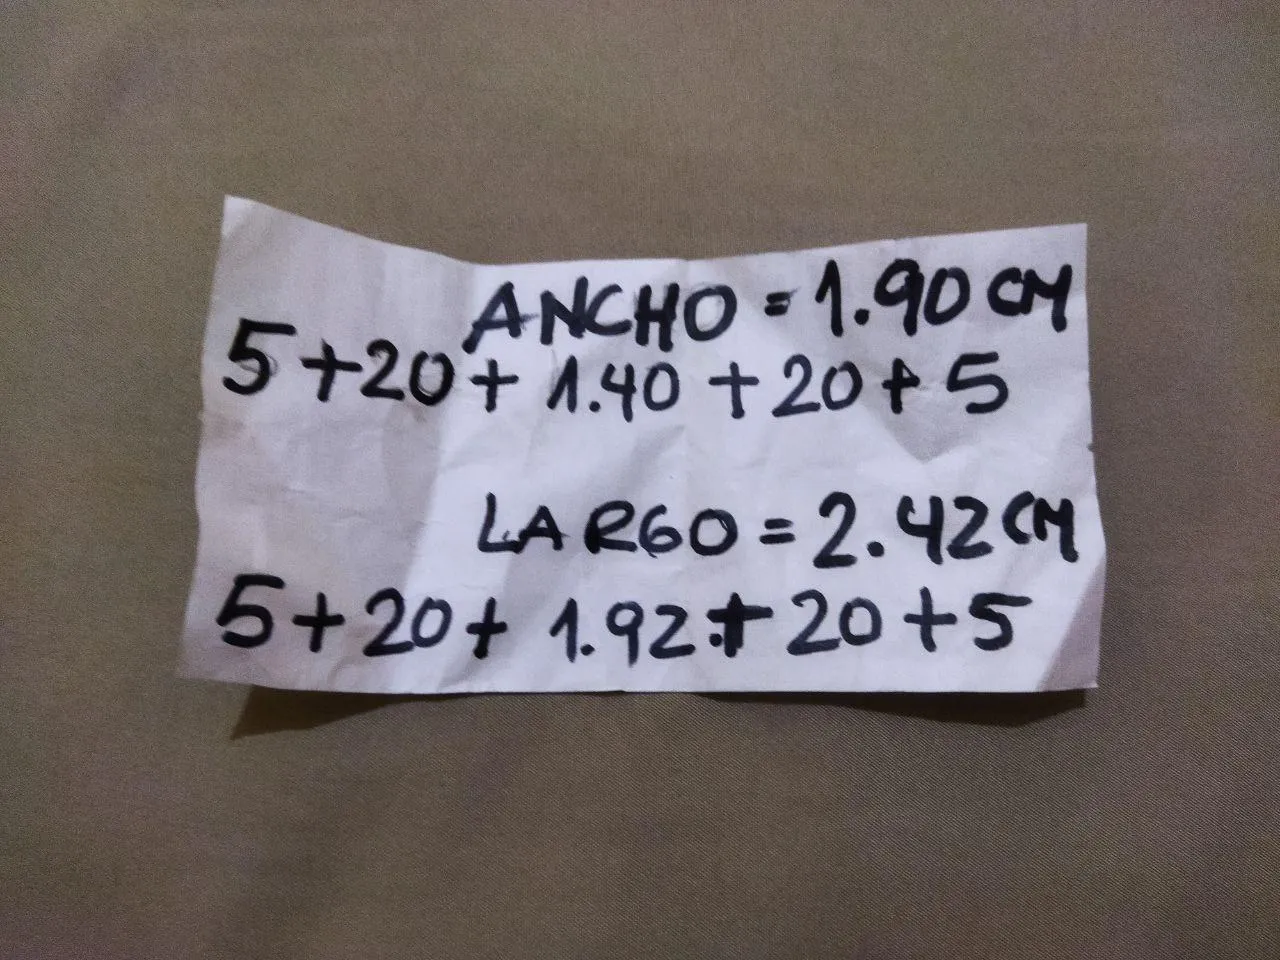 ANCHO = 1.90 CM
5 + 20 + 1.40 + 20 + 5
LARGO = 2.42 CM
5 + 20 + 1.92 + 20 + 5